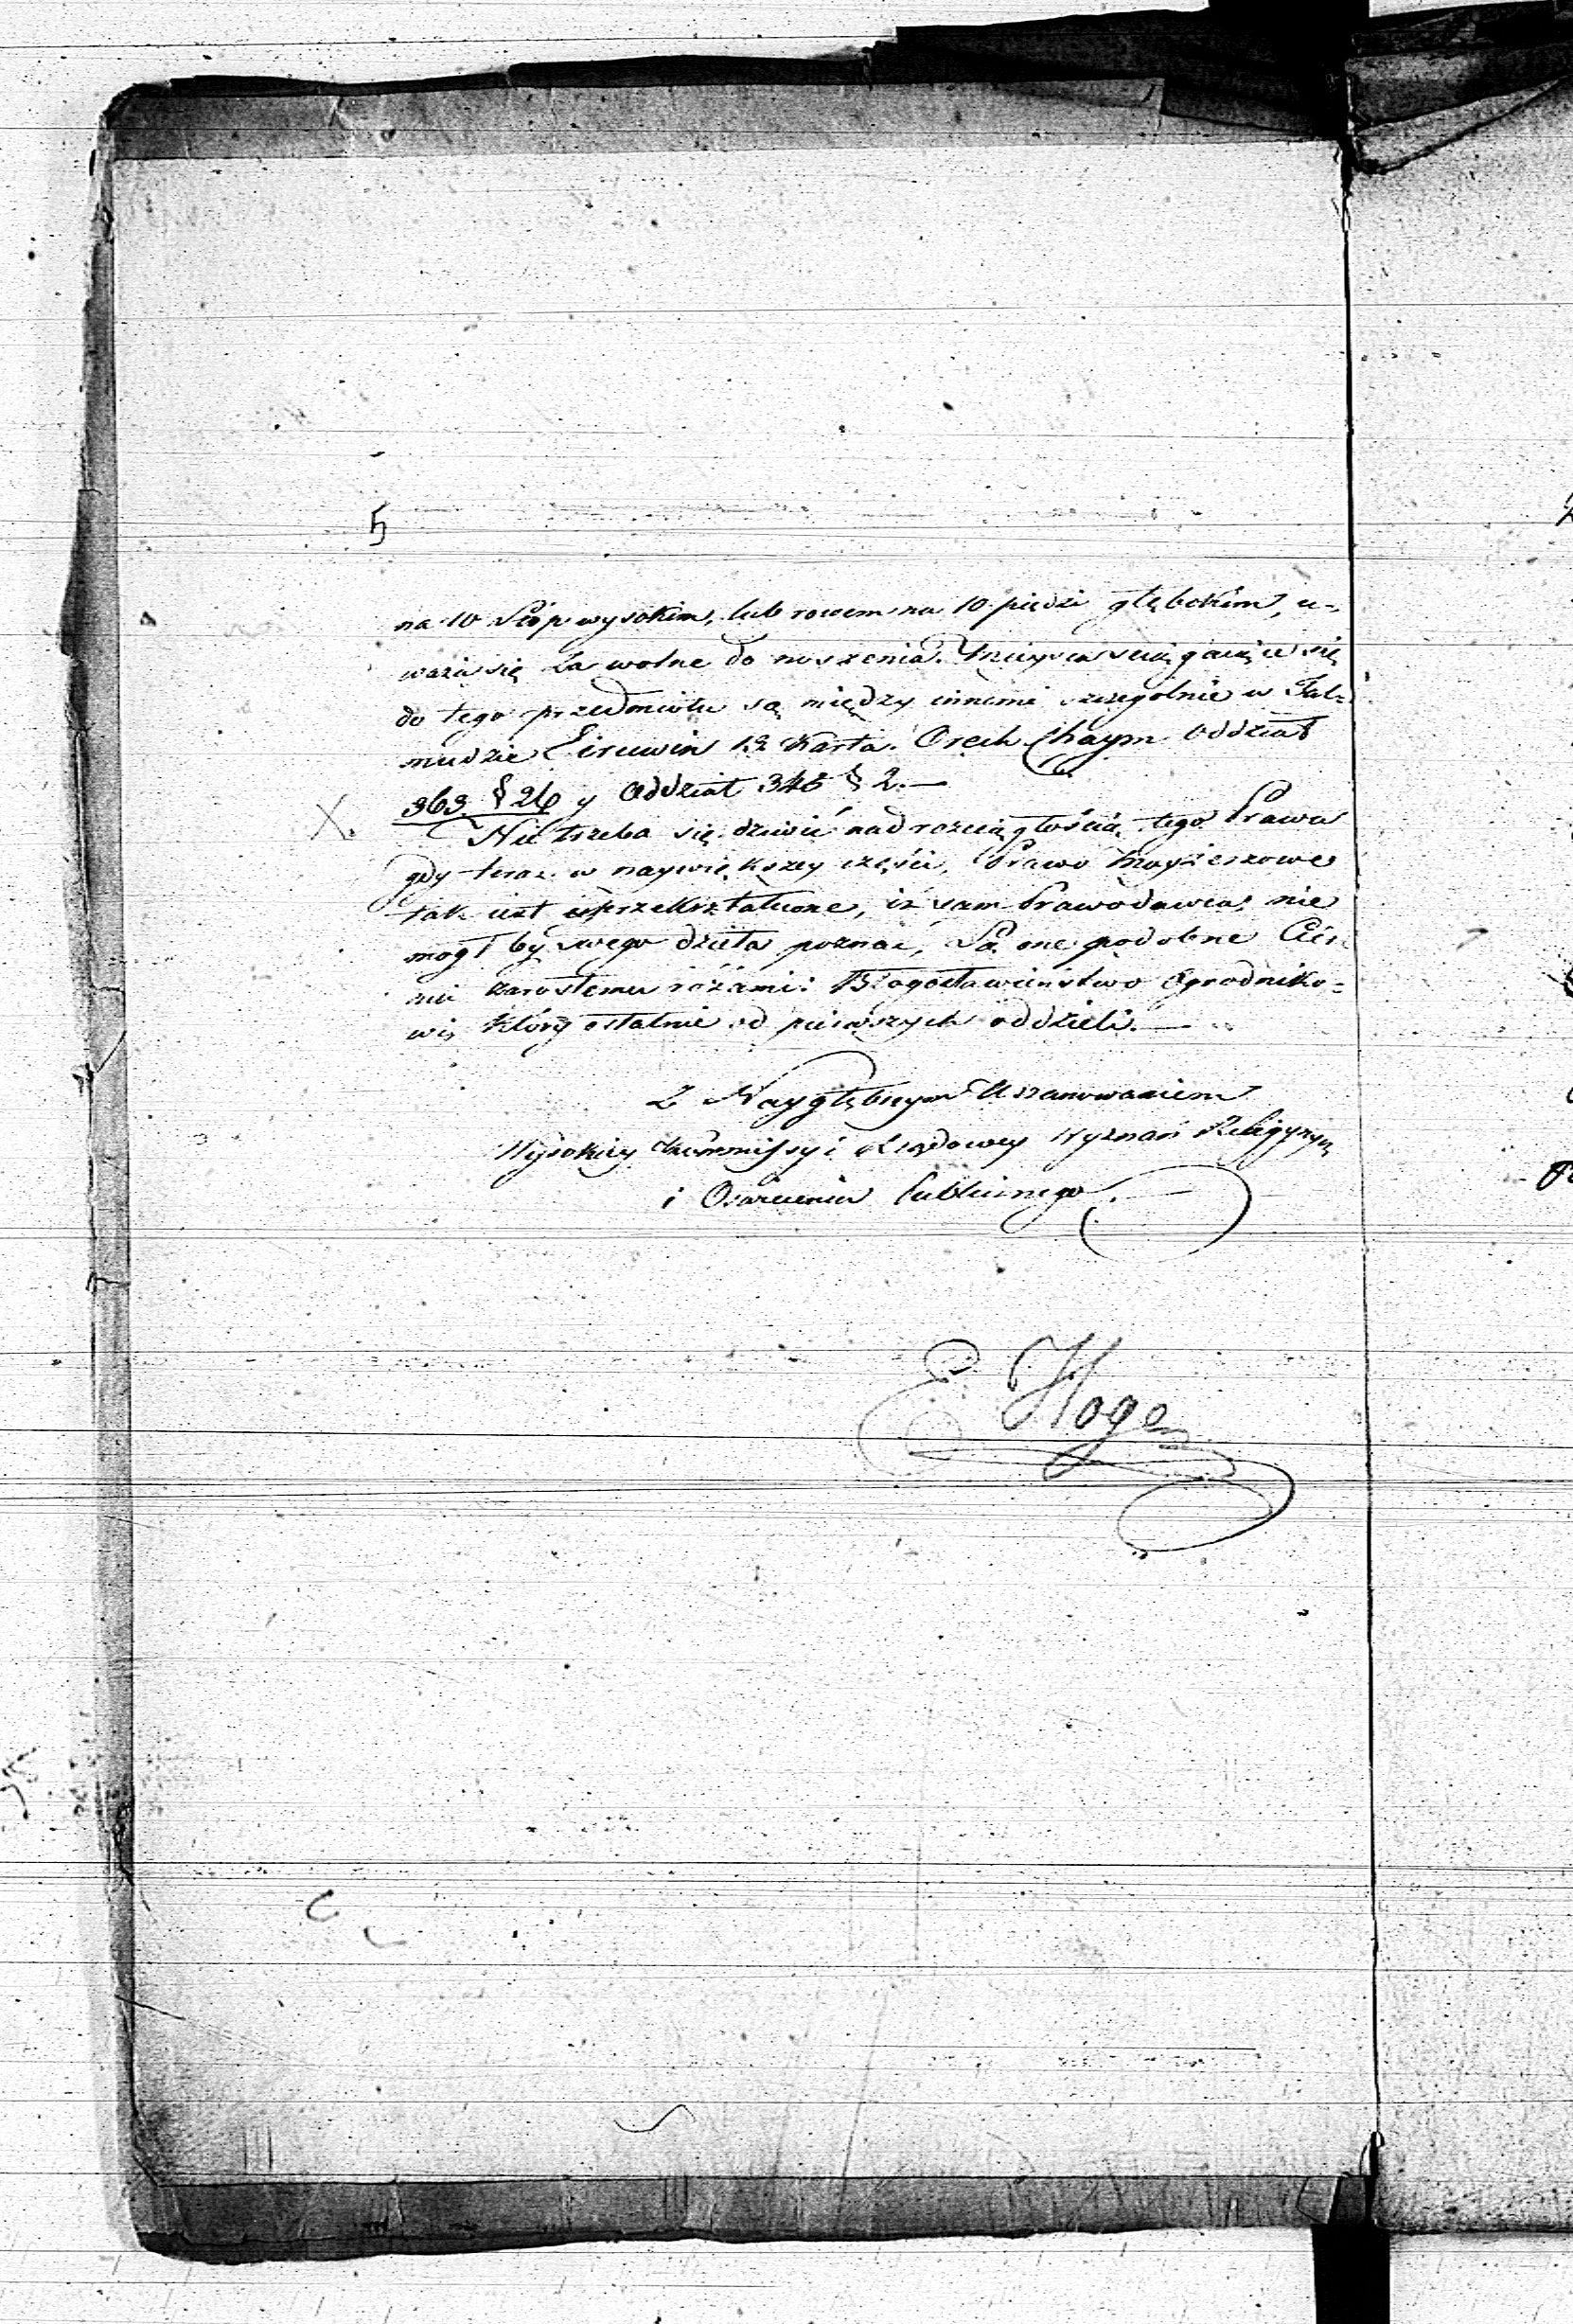 5
na 10 Stóp wysokim, lub rowem na 10 piędzi głębokim, u-
waża się za wolne do noszenia. Mieysca sciągaiące się
do tego przedmiotu są między innemi szczegolnie w Tal-
mudzie Eiruwin 12 Karta. Orech Chaym Oddział
363 § 26 y Oddział 345 § 2.—
X. Nie trzeba się dziwić nad rozciągłością tego Prawa
gdy teraz w naywiększey części, Prawo Moyżeszowe
tak iest przekształcone, iż sam Prawodawca, nie
mogł by swego dzieła poznać, Są one podobne Cier-
niu zarosłemu różami: Błogosławieństwo Ogrodniko=
wi, który ostatnie od pierwszych oddzieli.—
Z Nayglębszym Uszanowaniem
Wysokiey Kommissyi Rządowey Wyznań Religiynych
i Oświecenia Publicznego.—
E Hoge